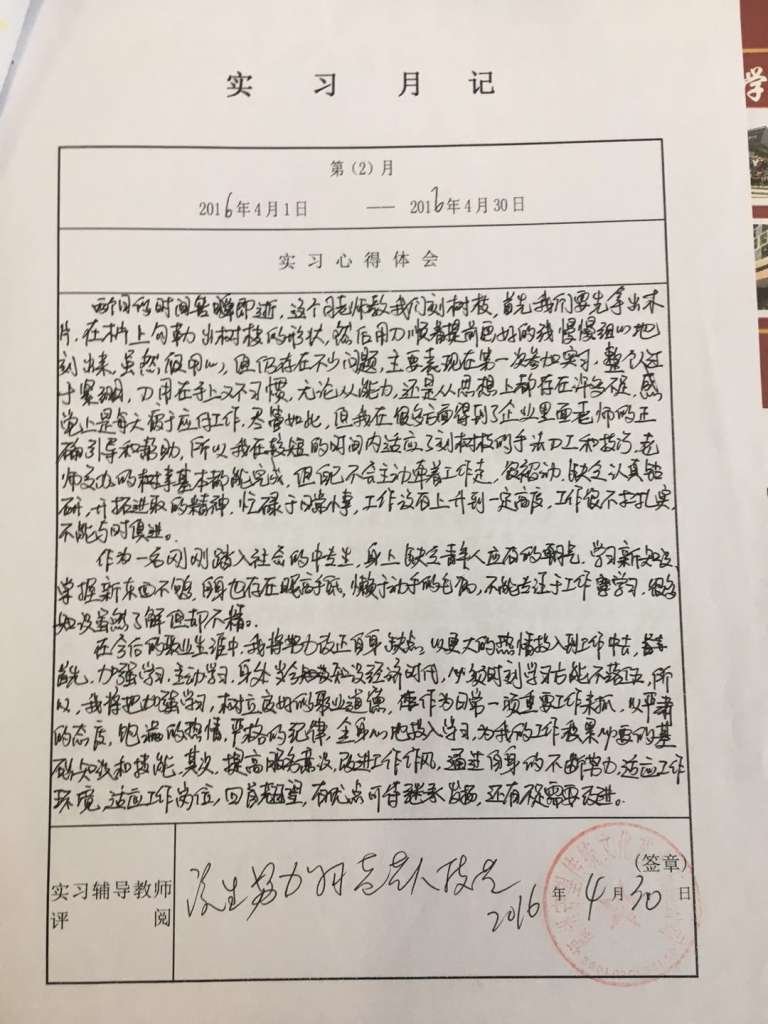 实习月记
第(2)月
2016年4月1日 —— 2016年4月30日
实习心得体会
两个月的时间转瞬即逝，这个月老师教我们刻树枝，首先我们要先拿出木
片，在木片上勾勒出树枝的形状，然后用刀顺着提前画好的线慢慢细心地
刻出来，虽然很用心，但仍存在不少问题，主要表现在第一次参加实习，整个人过
于紧绷，刀用在手上又不习惯，无论从能力，还是从思想上都存在许多不足，感
觉上是每天露于应付工作，尽管如此，但我在很多方面得到了企业里面老师的正
确引导和帮助，所以我在较短的时间内适应了刻树枝的手法刀工和技巧，老
师交办的树枝基本都能完成，但自己不会主动牵着工作走，很被动，缺乏认真钻
研，开拓进取的精神，忙碌于日常小事，工作没有上升到一定高度，工作做不扎实，
不能与时俱进。
作为一名刚刚踏入社会的中专生，身上缺乏青年人应有的朝气，学习新知识，
掌握新东西不够，自身也存在眼高手低，懒于动手的毛病，不能专注于工作学习，很多
知识虽然了解但却不精。
在今后的职业生涯中，我将努力改正自身缺点，以更大的热情投入到工作中去，
首先，加强学习，主动学习，身处当今知识经济时代，必须时刻学习方能不落伍，所
以，我将把加强学习，树立良好的职业道德，作为日常第一项重要工作来抓，以严肃
的态度，饱满的热情，严格的纪律，全身心地投入学习，为我的工作积累必要的基
础知识和技能，其次，提高服务意识，改进工作作风，通过自身的不断努力，适应工作
环境，适应工作岗位，回首展望，有优点可待继承发扬，还有不足需要改进。
实习辅导教师
评阅
(签章)
2016年4月30日